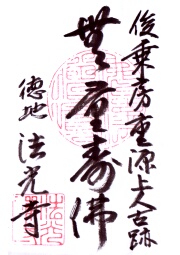 俊乗房重源上人古跡
無量寿佛
徳地 法光寺